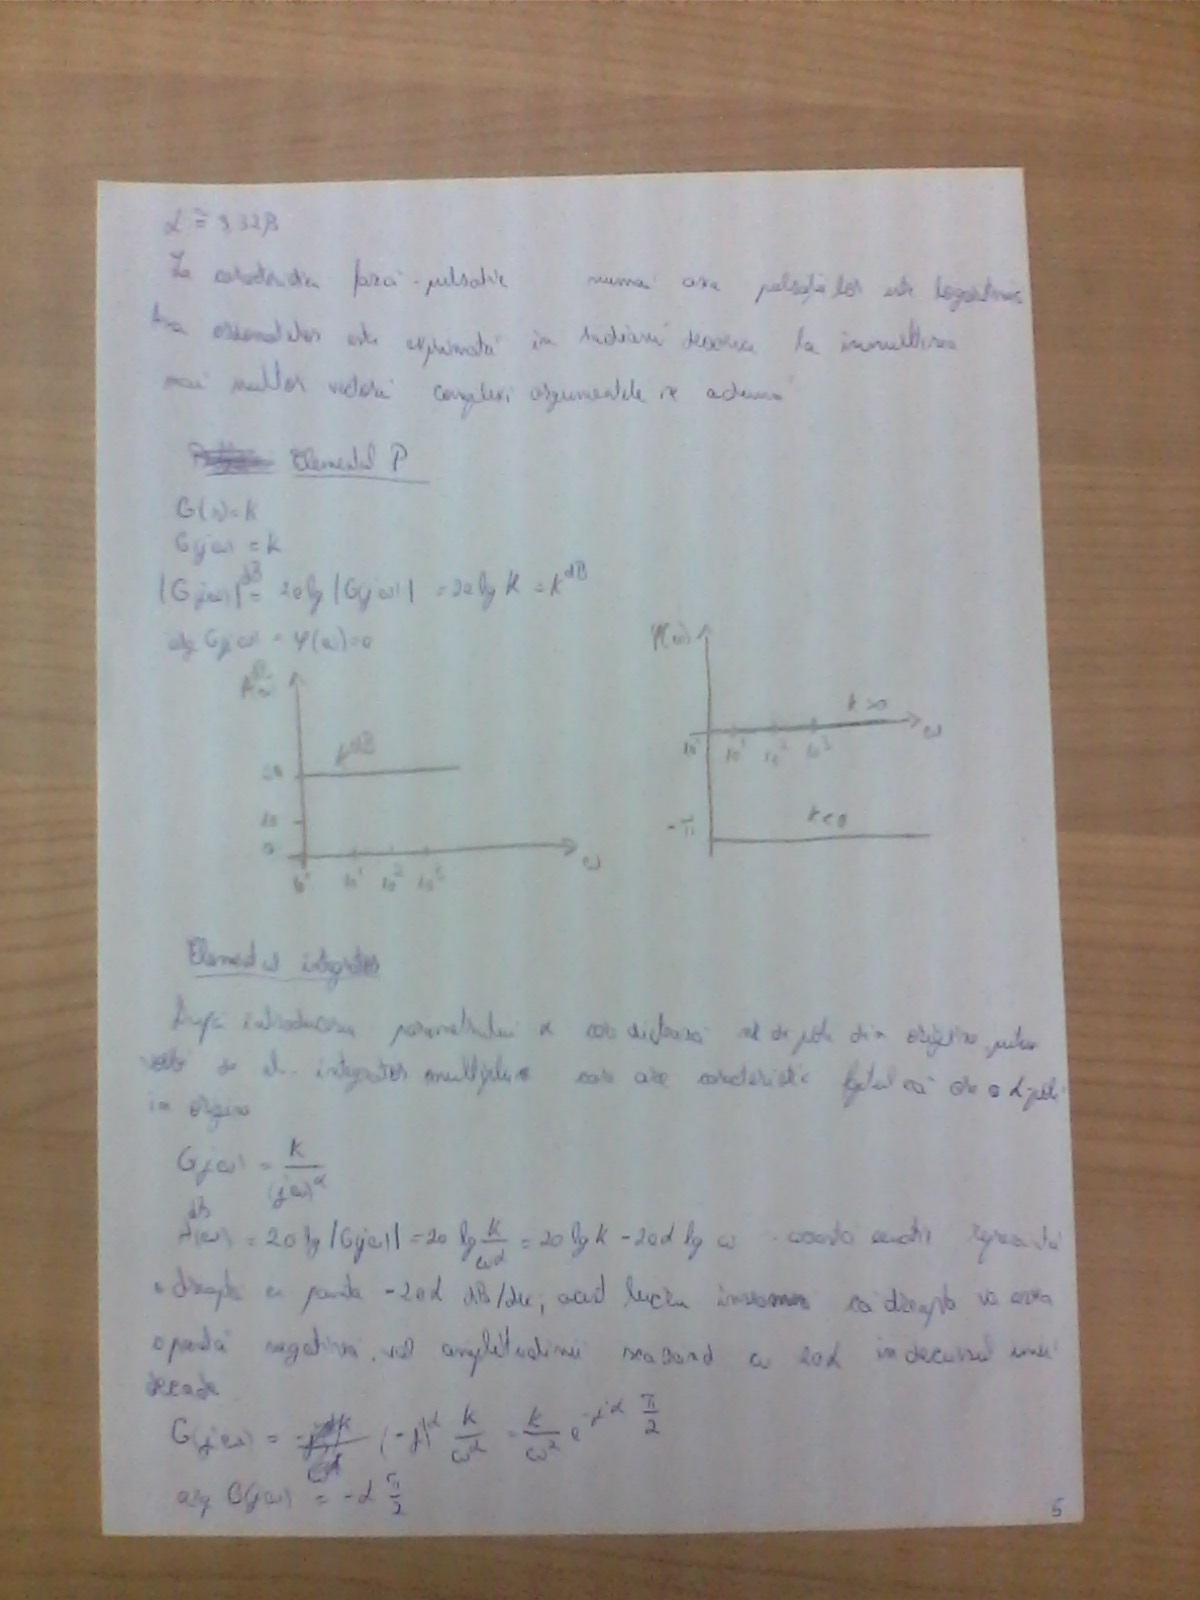 La caracteristica fază-pulsație numai axa pulsațiilor este logaritmică
Axa ordonatelor este exprimată in radiani deoarece la inmultirea
mai multor vectori complexi argumentele se aduna
Elementul P
G(s)=K
G(jω) = K
|G(jω)|^dB = 20 lg |G(jω)| = 20 lg K = K^dB
arg G(jω) = φ(ω)=0
φ(ω)
K>0
ω
10¹ 10² 10³
K^dB
20
-π
K<0
10
0
ω
10¹ 10² 10³
Elementul integrator
După introducerea parametrului α care dictează de poli din origine putem
vorbi de el. integrator multiplu care are caracteristic faptul că are α poli
in origine
G(jω) = K/(jω)^α
A(ω)^dB = 20 lg |G(jω)| = 20 lg K/ω^α = 20 lg K - 20α lg ω aceasta ecuatie reprezintă
o dreapta cu panta -20α dB/dec, acest lucru inseamna că dreapta va avea
o pantă negativa, val amplitudinii scazand cu 20α in decursul unei
decade
G(jω) = (-j)^α K/ω^α = K/ω^α e^-jα π/2
arg G(jω) = -α π/2
5